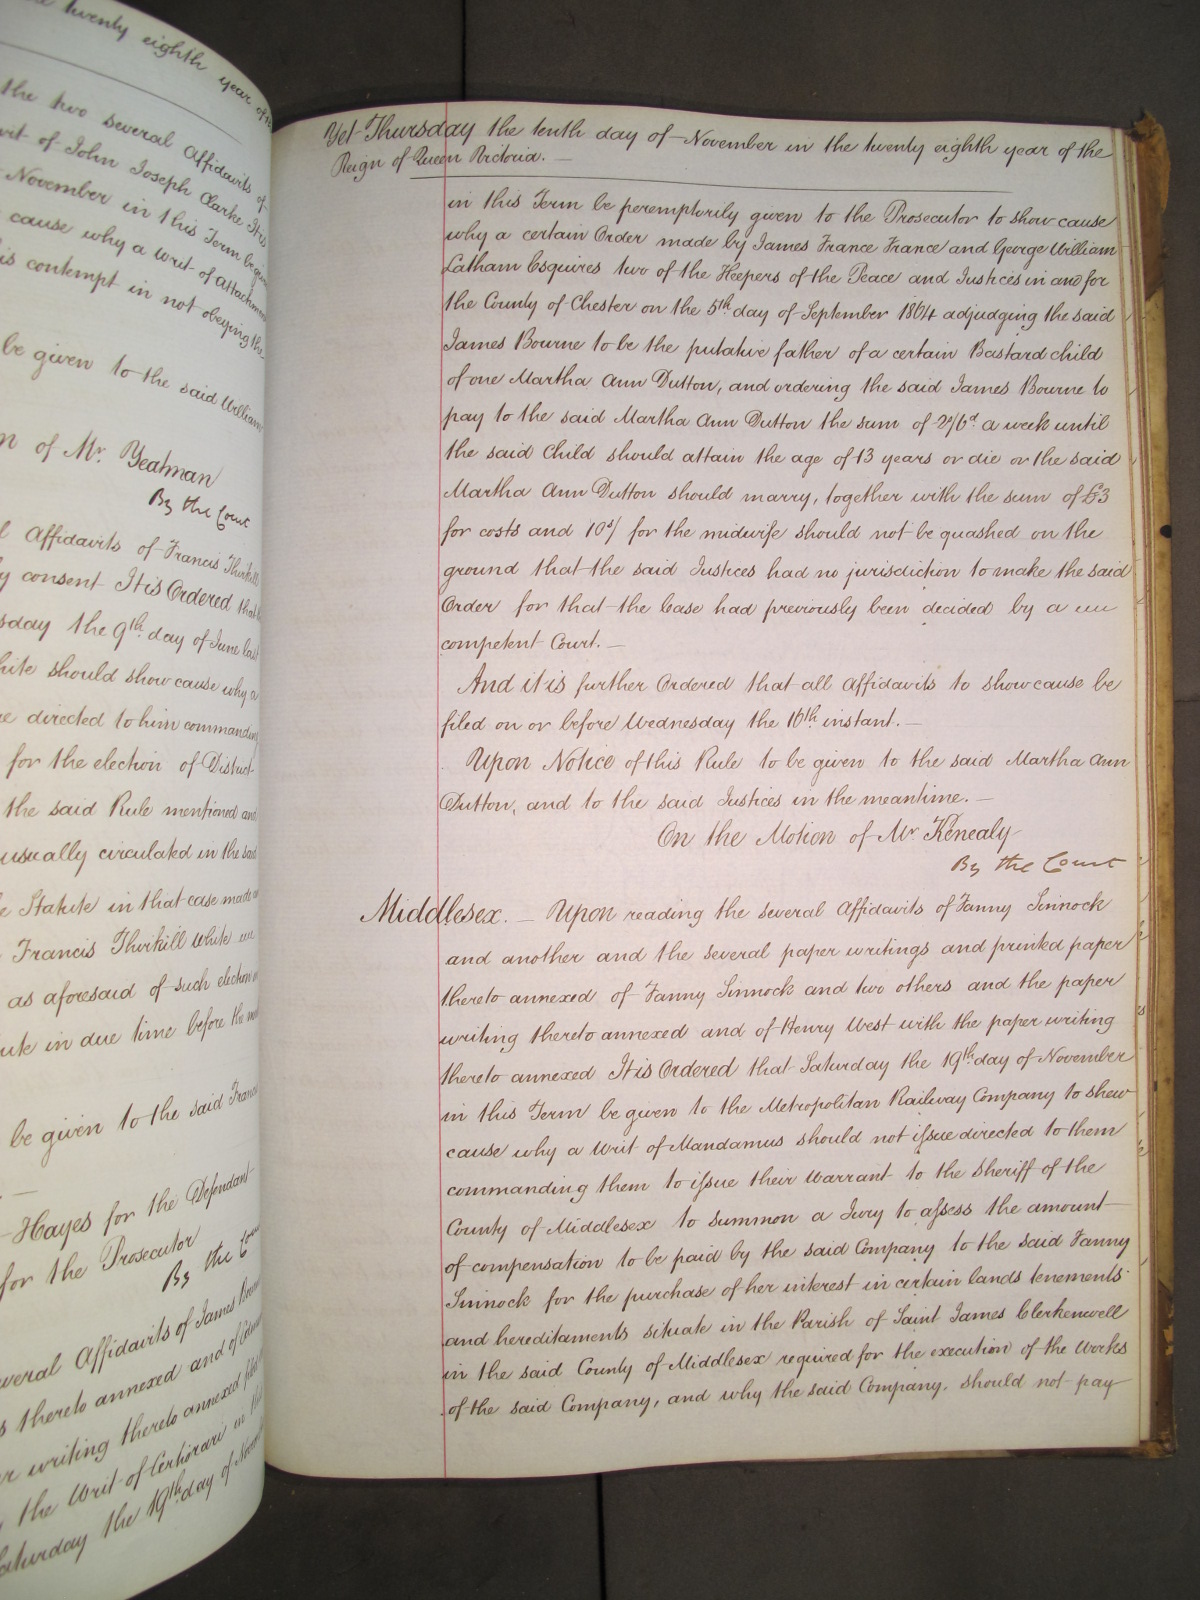 twenty eighth year of
the two several Affidavits of
of John Joseph Clarke It is
November in this Term be given
cause why a writ of Attachment
is contempt in not obeying the
be given to the said William
of Mr. Yeatman
By the Court
Affidavits of Francis Thirkill
consent It is Ordered that
the 9th day of June last
should show cause why a
directed to him commanding
for the election of District
the said Rule mentioned and
usually circulated in the said
Statute in that case made
Francis Thirkill White
as aforesaid of such election
in due time before the
be given to the said Francis
Hayes for the Defendant
for the Prosecutor
By the Court
several Affidavits of James
thereto annexed and of
writing thereto annexed filed
the Writ of Certiorari in this
Saturday the 19th day of November
Yet Thursday the tenth day of November in the twenty eighth year of the
Reign of Queen Victoria. —
in this Term be peremptorily given to the Prosecutor to show cause
why a certain Order made by James France France and George William
Latham Esquires two of the Keepers of the Peace and Justices in and for
the County of Chester on the 5th day of September 1864 adjudging the said
James Bourne to be the putative father of a certain Bastard child
of one Martha Ann Dutton, and ordering the said James Bourne to
pay to the said Martha Ann Dutton the sum of 2/6d a week until
the said Child should attain the age of 13 years or die or the said
Martha Ann Dutton should marry, together with the sum of £3
for costs and 10s/ for the midwife should not be quashed on the
ground that the said Justices had no jurisdiction to make the said
Order for that the Case had previously been decided by a
competent Court. —
And it is further Ordered that all Affidavits to show cause be
filed on or before Wednesday the 16th instant. —
Upon Notice of this Rule to be given to the said Martha Ann
Dutton, and to the said Justices in the meantime. —
On the Motion of Mr Kenealy
By the Court
Middlesex. — Upon reading the several Affidavits of Fanny Sinnock
and another and the several paper writings and printed paper
thereto annexed of Fanny Sinnock and two others and the paper
writing thereto annexed and of Henry West with the paper writing
thereto annexed It is Ordered that Saturday the 19th day of November
in this Term be given to the Metropolitan Railway Company to shew
cause why a Writ of Mandamus should not issue directed to them
commanding them to issue their Warrant to the Sheriff of the
County of Middlesex to summon a Jury to assess the amount
of compensation to be paid by the said Company to the said Fanny
Sinnock for the purchase of her interest in certain lands tenements
and hereditaments situate in the Parish of Saint James Clerkenwell
in the said County of Middlesex required for the execution of the Works
of the said Company, and why the said Company, should not pay